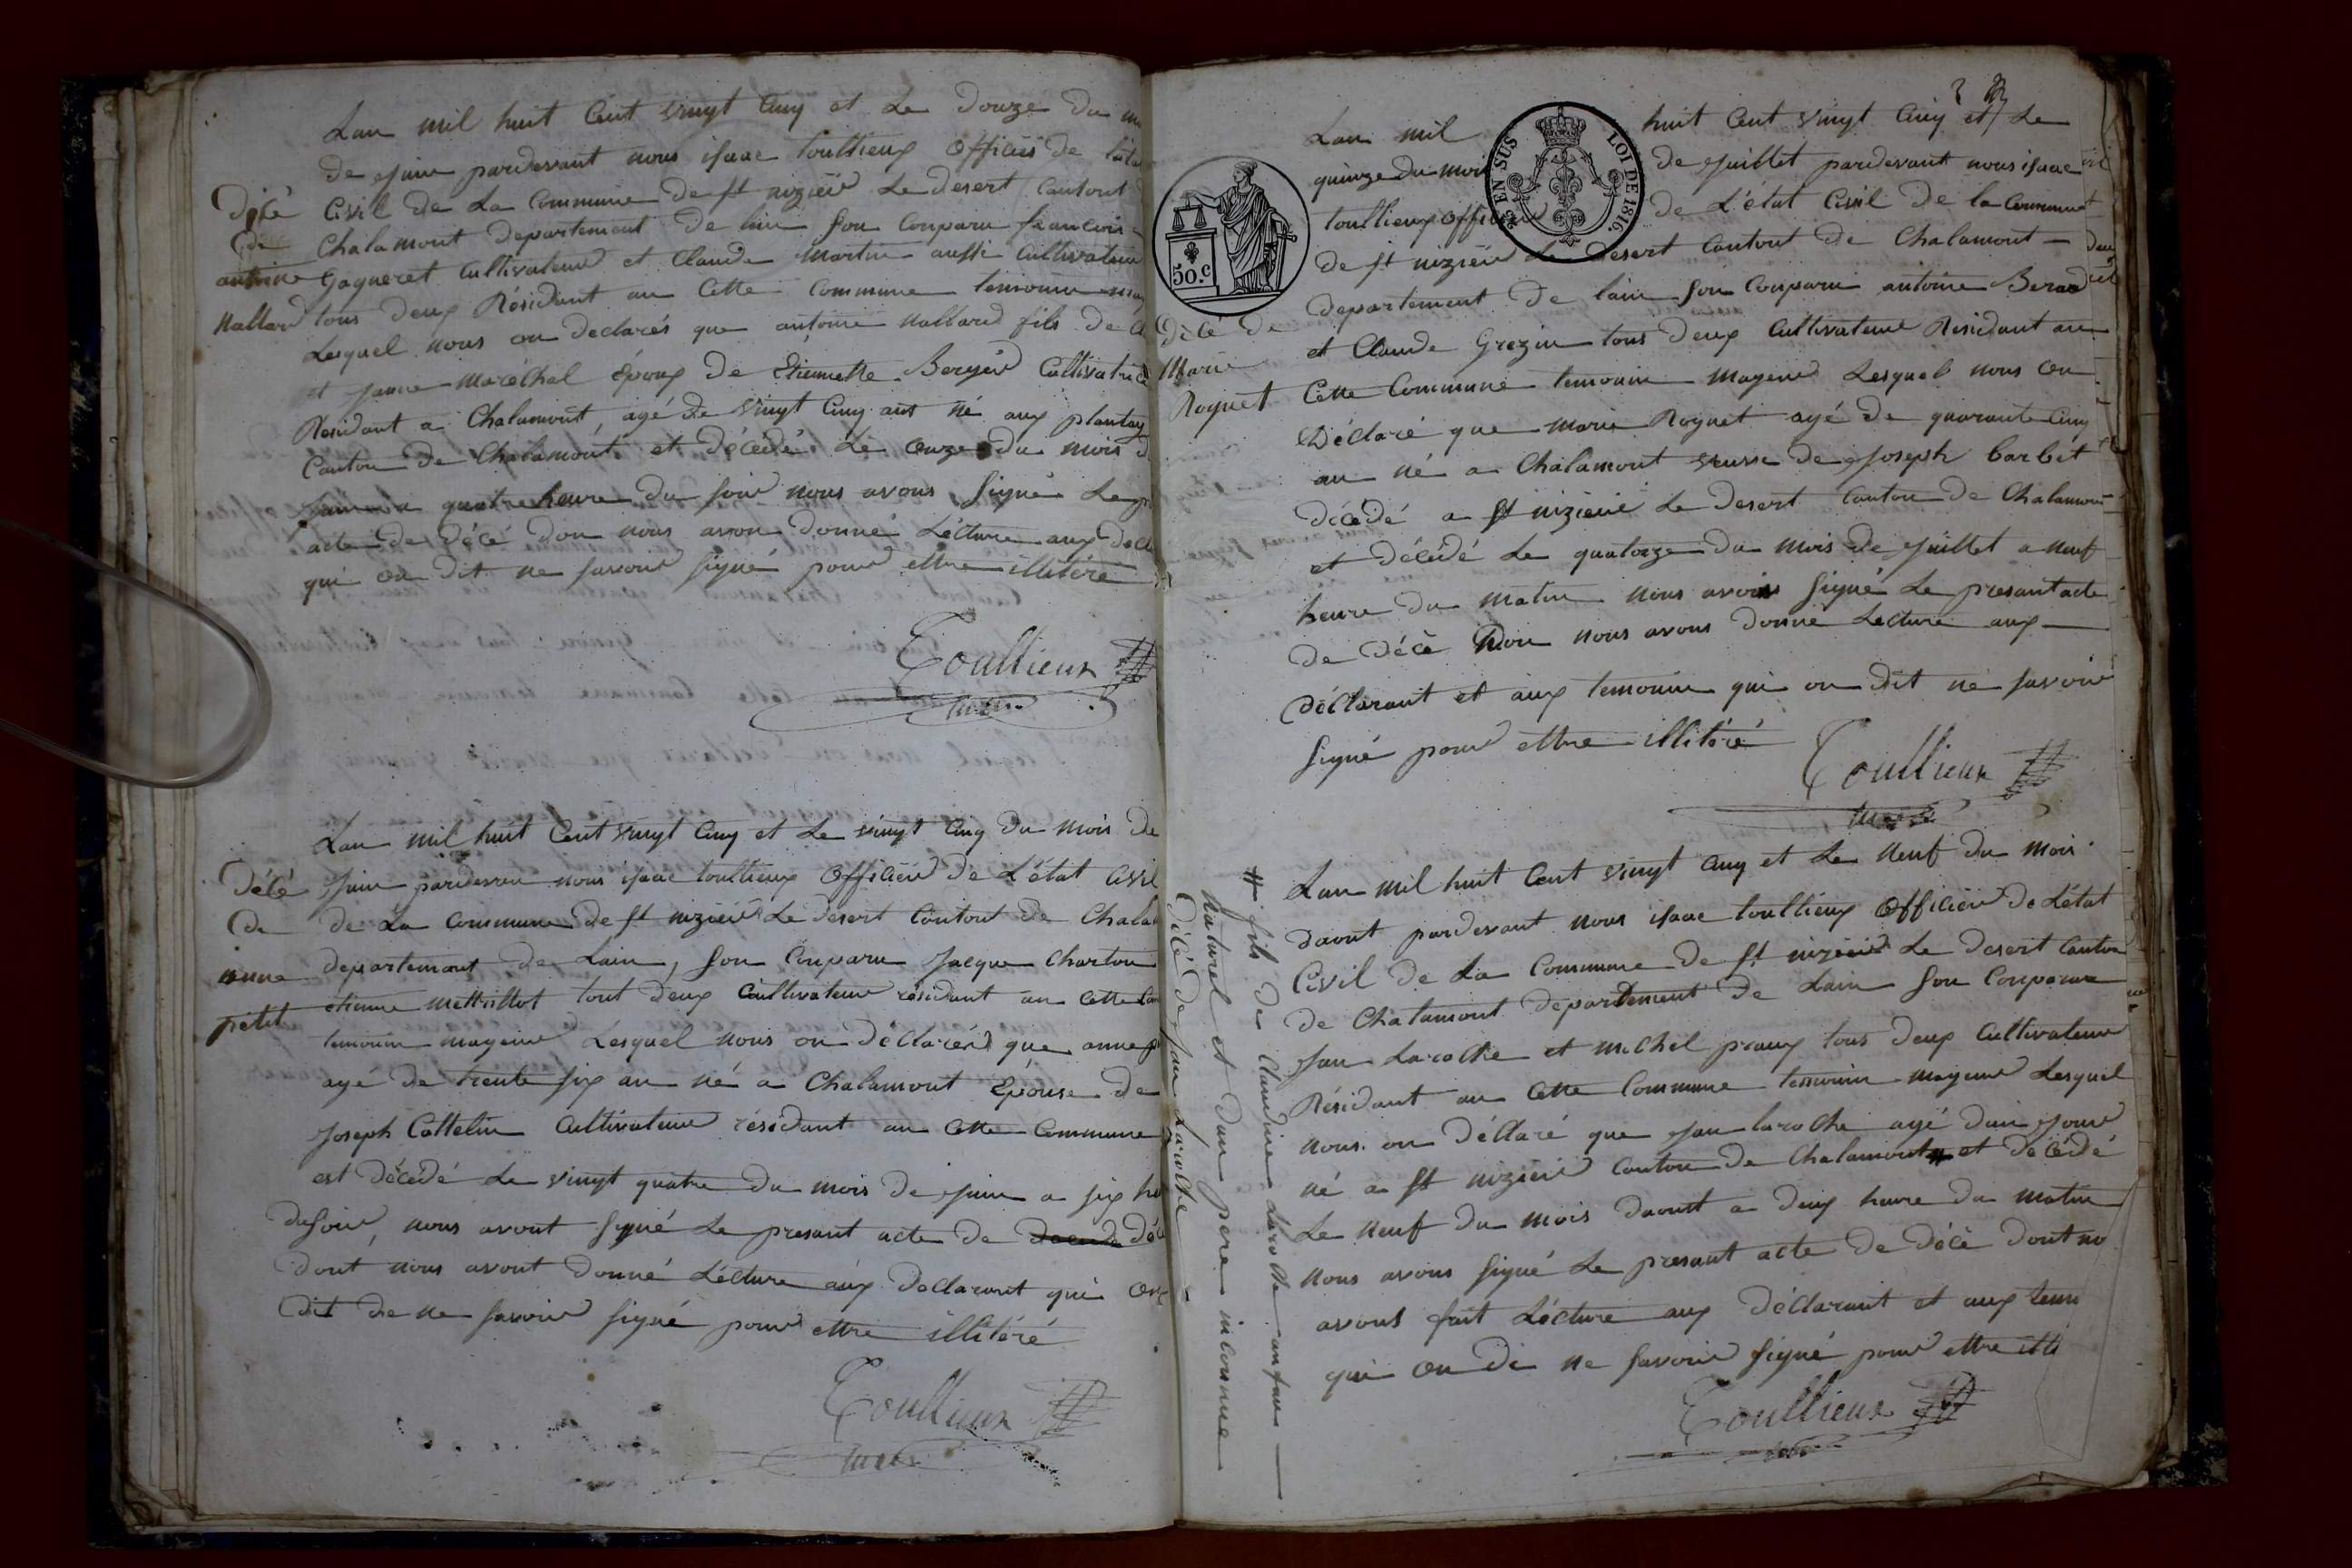 Lan mil huit Cent vingt Cinq et Le Douze Du
de juin pardevant nous isaac toullieux officié de
Civil de La Commune de st nizier Le desert Cantont
Chalamont departement de lain son Conparu francois
Gagneret Cultivateur et Claude Martin aussi Cultivateur
tous deux Résidant an Cette Commune temouin
Lesquel nous on declarés que antoine Mallard fils de
et jeanne Maréchal époux de Etiennette Bergier Cultivatrice
Résidant a Chalamont, agé de vingt Cinq ant né aux plantay
Canton de Chalamont et décédé Le onze du mois
quatre heure du soir nous avons signé Le
acte de décé don nous avon donné Lécture aux
qui on dit ne savoir signé pour ettre illitéré
Toullieux
Décé
de
antoine
Mallard
Lan mil huit Cent vingt Cinq et Le vingt Cinq du mois de
juin pardevan nous isaac toullieux officiér de L'état Civil
de La Commune de st nizier Le desert Cantont de
departemant de Lain, son Conparu Jacque Charton
etienne tout deux Cultivateur résidant an cette
temouin mageur Lesquel nous on déclarés que anne
agé de trente six an né a Chalamont Epouse de
Joseph Cattelin Cultivateur résidant an Cette Commune
est décédé Le vingt quatre du mois de juin a six
du soir, nous avont signé Le presant acte de
dont nous avont donné Lécture aux declarant qui on
dit de ne savoir signé pour ettre illitéré
Toullieux
Décé
De
anne
petit
50.c
EN SUS
LOI DE 1816.
Lan mil huit Cent vingt Cinq et Le
quinze du mois de juillet pardevant nous isaac
toullieux officier de L'état Civil de la Commune
de st nizier Le desert Cantont de Chalamont
departement de lain son Conparu antoine
et Claude Grezin tous deux Cultivateur Residant an
Cette Commune temouin Mageur Lesquel nous on
Déclaré que marie Roquet agé de quarante Cinq
an né a Chalamont veuve de Joseph barbet
décédé a st nizier Le desert Canton de Chalamont
et décédé Le quatorze du mois de juillet a neuf
heure du matin nous avons signé Le presant acte
de décè don nous avons donné Lecture aux
déclarant et aux temouin qui on dit ne savoir
signé pour ettre illitéré
Toullieux
Décé de
Marie
Roquet
Lan mil huit Cent vingt Cinq et Le Neuf du mois
daout pardevant nous isaac toullieux officiér de L'état
Civil de La Commune de st nizier Le desert Canton
de Chalamont departement de Lain son Conparu
Jan Laroche et michel praux tous deux Cultivateur
Résidant an Cette Commune temouin mageur Lesquel
nous on déclaré que jan laroche agé dun jour
né a st nizier Canton de Chalamont # et décédé
Le Neuf du mois daout a deux heure du matin
nous avons signé Le presant acte de décè dont
avons fait Lécture aux déclarant et aux
qui on di ne savoir signé pour ettre
Toullieux
Décé de jan Laroche
# fils de Claudine Laroche anfan
naturel et dun pere inconnue